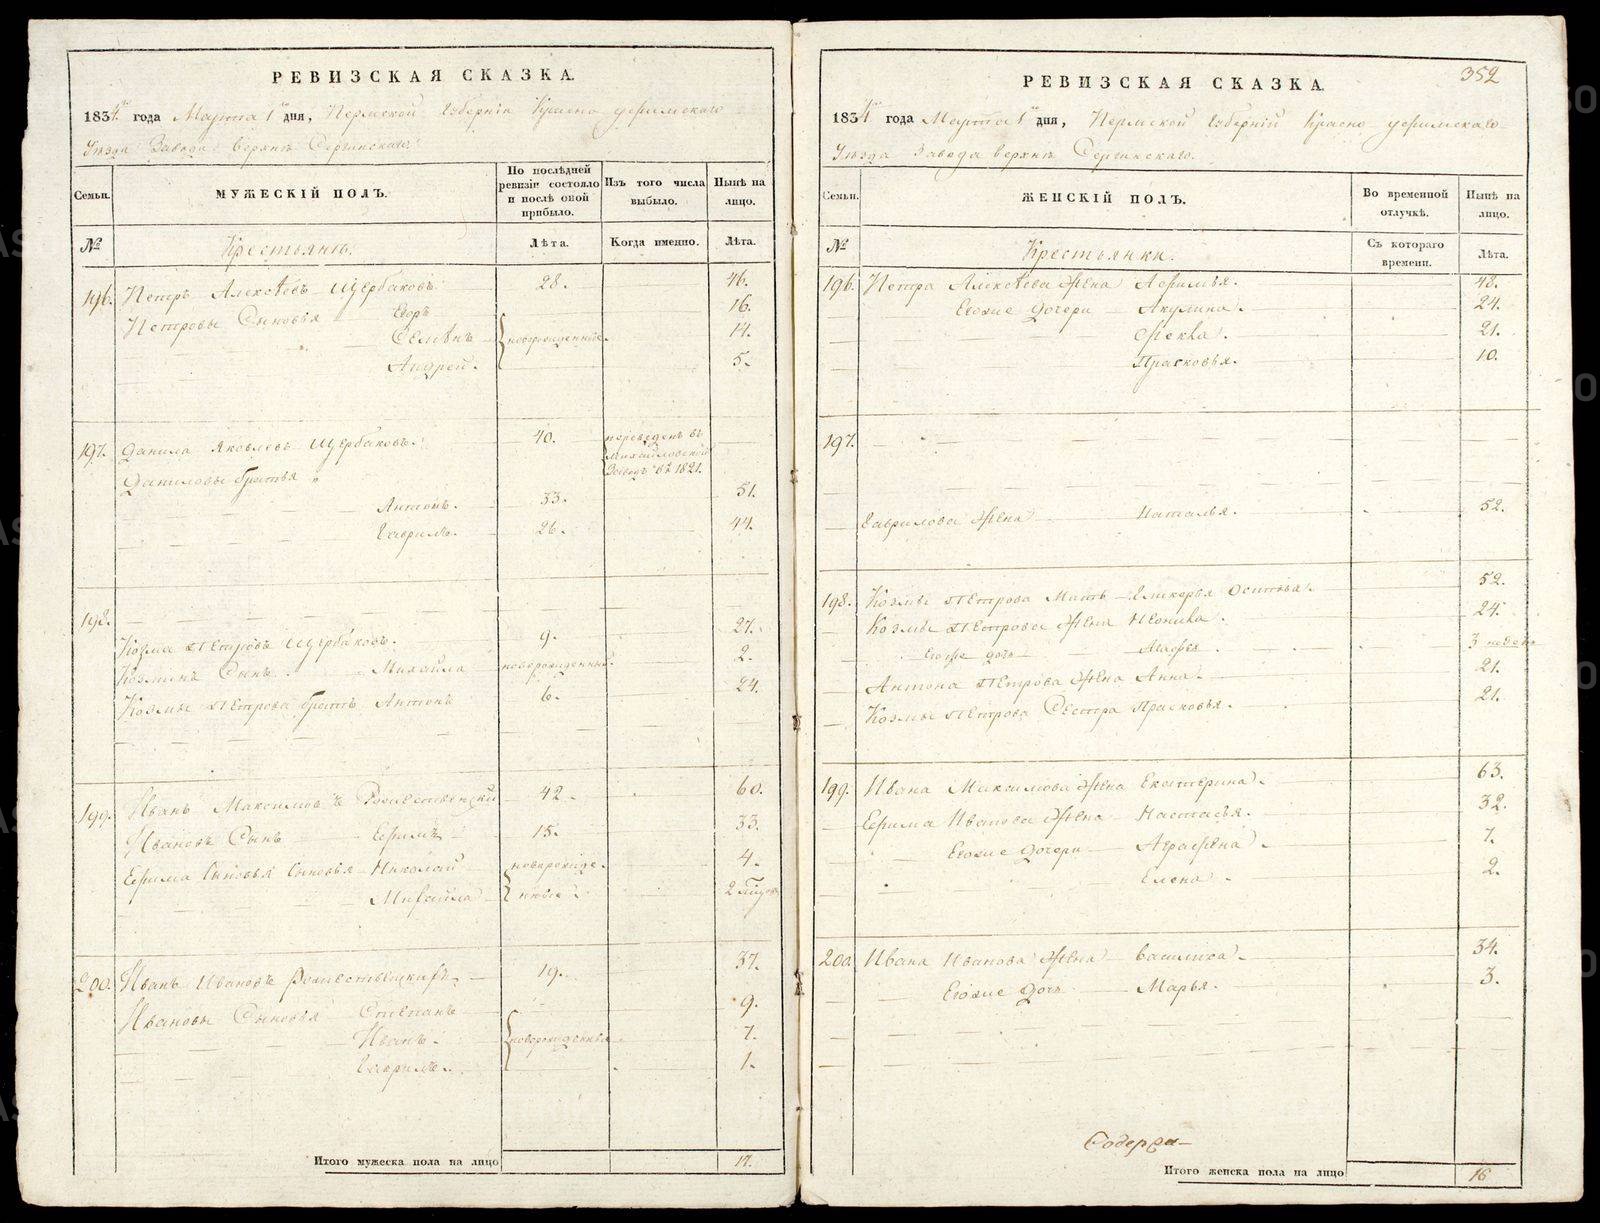 РЕВИЗСКАЯ СКАЗКА.
1834го года Марта 1го дня, Пермской Губерніи Красноуфимскаго
Уѣзда Завода Верхнѣ Сергинскаго.
Семьи.
МУЖЕСКІЙ ПОЛЪ.
По послѣдней ревизіи состояло и послѣ оной прибыло.
Изъ того числа выбыло.
Нынѣ на лицо.
№
Крестьянѣ.
Лѣта.
Когда именно.
Лѣта.
196. Петръ Алексѣевъ Щербаковъ 28. 46.
Петровы Сыновья Егоръ 16.
Семенъ новорожденные. 14.
Андрей. 5.
197. Данила Яковлевъ Щербаковъ. 40. переведенъ въ Михайловской Заводъ въ 1821.
Даниловы братья
Антонъ. 33. 51.
Гаврилъ. 26. 44.
198.
Козма Петровъ Щербаковъ. 9. 27.
Козминъ Сынъ Михайла новорожденный. 2.
Козмы Петрова братъ Антонъ 6. 24.
199. Иванъ Максимовъ 42. 60.
Ивановъ Сынъ Ефимъ 15. 33.
Ефима Сыновья Николай новорожде- 4.
Михайла нные. 2
200. Иванъ Ивановъ 19. 37.
Ивановы Сыновья Степанъ 9.
Иванъ. новорожденные 7.
Гаврилъ. 1.
Итого мужеска пола на лицо 17.
352
РЕВИЗСКАЯ СКАЗКА.
1834го года Марта 1го дня, Пермской Губерніи Красноуфимскаго
Уѣзда Завода Верхнѣ Сергинскаго.
Семьи.
ЖЕНСКІЙ ПОЛЪ.
Во временной отлучкѣ.
Нынѣ на лицо.
№
Крестьянки.
Съ котораго времени.
Лѣта.
196. Петра Алексѣева Жена Афимья. 48.
Егоже дочери Акулина. 24.
Фекла. 21.
Прасковья. 10.
197.
Гаврилова Жена Наталья. 52.
198. Козмы Петрова Мать Гликерья Осипова. 52.
Козмы Петрова Жена Неонила. 24.
Егоже дочь Агафья. 3
Антона Петрова Жена Анна. 21.
Козмы Петрова Сестра Прасковья. 21.
199. Ивана Максимова Жена Екатерина. 63.
Ефима Иванова Жена Настасья. 32.
Егоже дочери Аграфена. 7.
Елена. 2.
200. Ивана Иванова Жена Василиса. 34.
Егоже дочь Марья. 3.
Итого женска пола на лицо 16